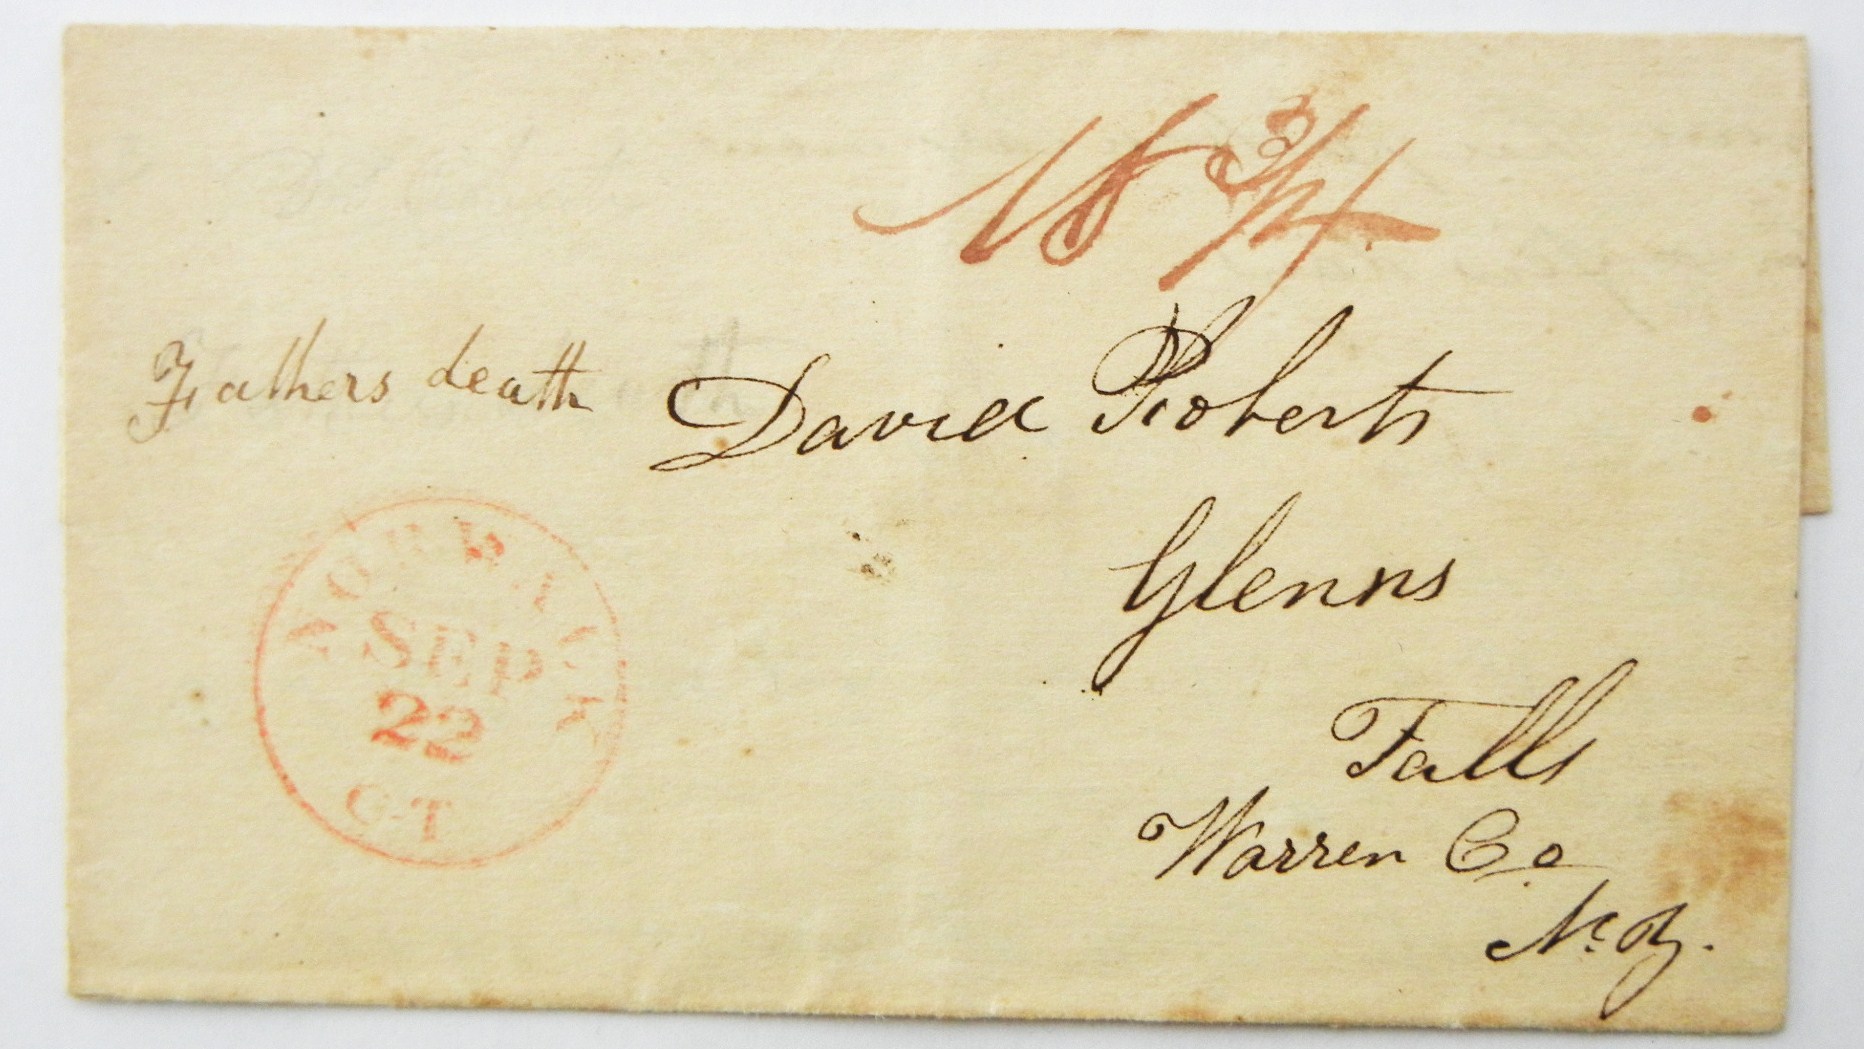 18 3/4
Fathers death
David Roberts
Glenns
Falls
Warren Co
N. Y.
SEP
22
CT